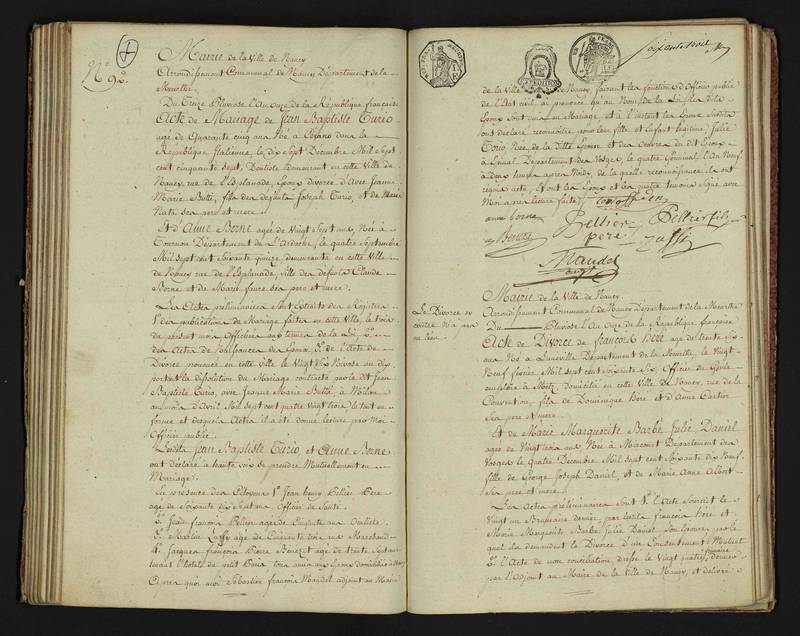 N.º 92.
Mairie de la Ville de Nancy
Arrondissement Communal de Nancy Département de la
Meurthe.
Du Treize Pluviose L'An onze de la République française
Acte de Mariage de Jean Baptiste Turio
agé de Quarante cinq ans Né à dans la
République Italienne, le dix Sept Décembre Mil Sept
cent cinquante Sept, Dentiste demeurant en cette Ville de
Nancy, rue de l'Esplanade, Epoux divorcé d'avec Jeanne
Marie Butté, fils des défunts Joseph Turio, et de Marie
ses pere et mere.
Et d'Anne Borne agée de Vingt Sept ans, Née à
Tournon Département de L'Ardeche, le quatre Septembre
Mil Sept cent Soixante quinze, demeurante en cette Ville
de Nancy rue de l'Esplanade, fille des défunts Claude
Borne et de Marie ses pere et mere.
Les Actes préliminaires Sont Extraits des Registres
1.º des publications de Mariage faites en cette Ville, le trois
du présent mois Affichées aux termes de la Loi 2.º
des Actes de Naissances des Epoux 3.º de l'Acte de
Divorce prononcé en cette Ville le Vingt Six Nivose au dix
portant la dissolution du Mariage contracté par le dit Jean
Baptiste Turio, avec Jeanne Marie Butté, à Milan
au mois d'Avril Mil Sept cent quatre Vingt trois le tout en
forme et desquels Actes il a été donné lecture par Moi
Officier public.
Lesdits Jean Baptiste Turio et Anne Borne
ont déclaré à haute voix se prendre Mutuellement en
Mariage.
En présence des Citoyens 1.º Jean henry Pellier Père
agé de Soixante dix Sept ans Officier de Santé.
2.º Jean François Pellier agé de Cinquante ans Oculiste.
3.º Martin Luffy agé de Cinquante trois ans Marchand
4.º Jacques françois agé de trente Sept ans
tenant l'hotel du petit Paris, tous amis aux Epoux domiciliés à Nancy
Après quoi moi Sébastien François Mandel, adjoint au Maire
de la Ville de Nancy, faisant les fonctions d'Officier public
de l'Etat civil ai prononcé qu'au Nom de la Loi les dits
Epoux sont unis en Mariage, et à l'instant les Epoux Susdits
ont déclaré reconnoitre pour leur fille et Enfant légitime Julie
Turio Née, de la ditte Epouse et des oeuvres du dit Epoux
à Epinal Département des Vosges, le quatre Germinal l'An Neuf
à Deux heures après Midi, de la quelle reconnoissance ils ont
requis acte, Et ont les Epoux et les quatre temoins Signé avec
Moi après lecture faite.
anne borne
Pellier
père
Pellier fils
Mandel
Le Divorce ci
contre n'a pas
eu lieu.
Mairie de la Ville de Nancy
Arrondissement Communal de Nancy Département de la Meurthe
Du Pluviose l'An Onze de la République française
Acte de Divorce de françois héré agé de trente six
ans Né à Lunéville Département de la Meurthe, le Vingt
Neuf février Mil Sept cent Soixante Six, Officier du Génie
employé à Metz domicilié en cette Ville de Nancy, rue de la
Convention, fils de Dominique Héré et d'Anne Cartier
Ses pere et mere.
Et de Marie Marguerite Barbe Julie Daniel
agée de Vingt trois ans Née à Mirecourt Département des
Vosges le Quatre Décembre Mil Sept cent Soixante dix Neuf,
fille de George Joseph Daniel, et de Marie Anne Albert
Ses pere et mere.
Les Actes préliminaires Sont 1.º l'Acte Souscrit le
Vingt un Brumaire dernier par lesdits François Héré et
Marie Marguerite Barbe Julie Daniel Son Epouse, par le
quel ils demandent le Divorce d'un Consentement Mutuel
2.º l'Acte de non conciliation, dressé le Vingt quatre frimaire dernier
par l'Adjoint au Maire de la Ville de Nancy, et délivré